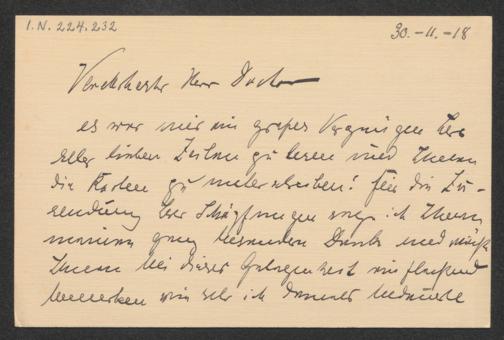 I.N. 224.232
30.-11.-18
Verehrtester Herr Doctor
es war mir ein großes Vergnügen Ihre
lieben Zeilen zu lesen und Ihnen
die Karten zu unterschreiben! Für die Zu-
sendung Ihrer Schöpfungen sage ich Ihnen
meinen ganz besonderen Dank und
Ihnen bei dieser Gelegenheit
bemerken wie sehr ich damals bedauerte